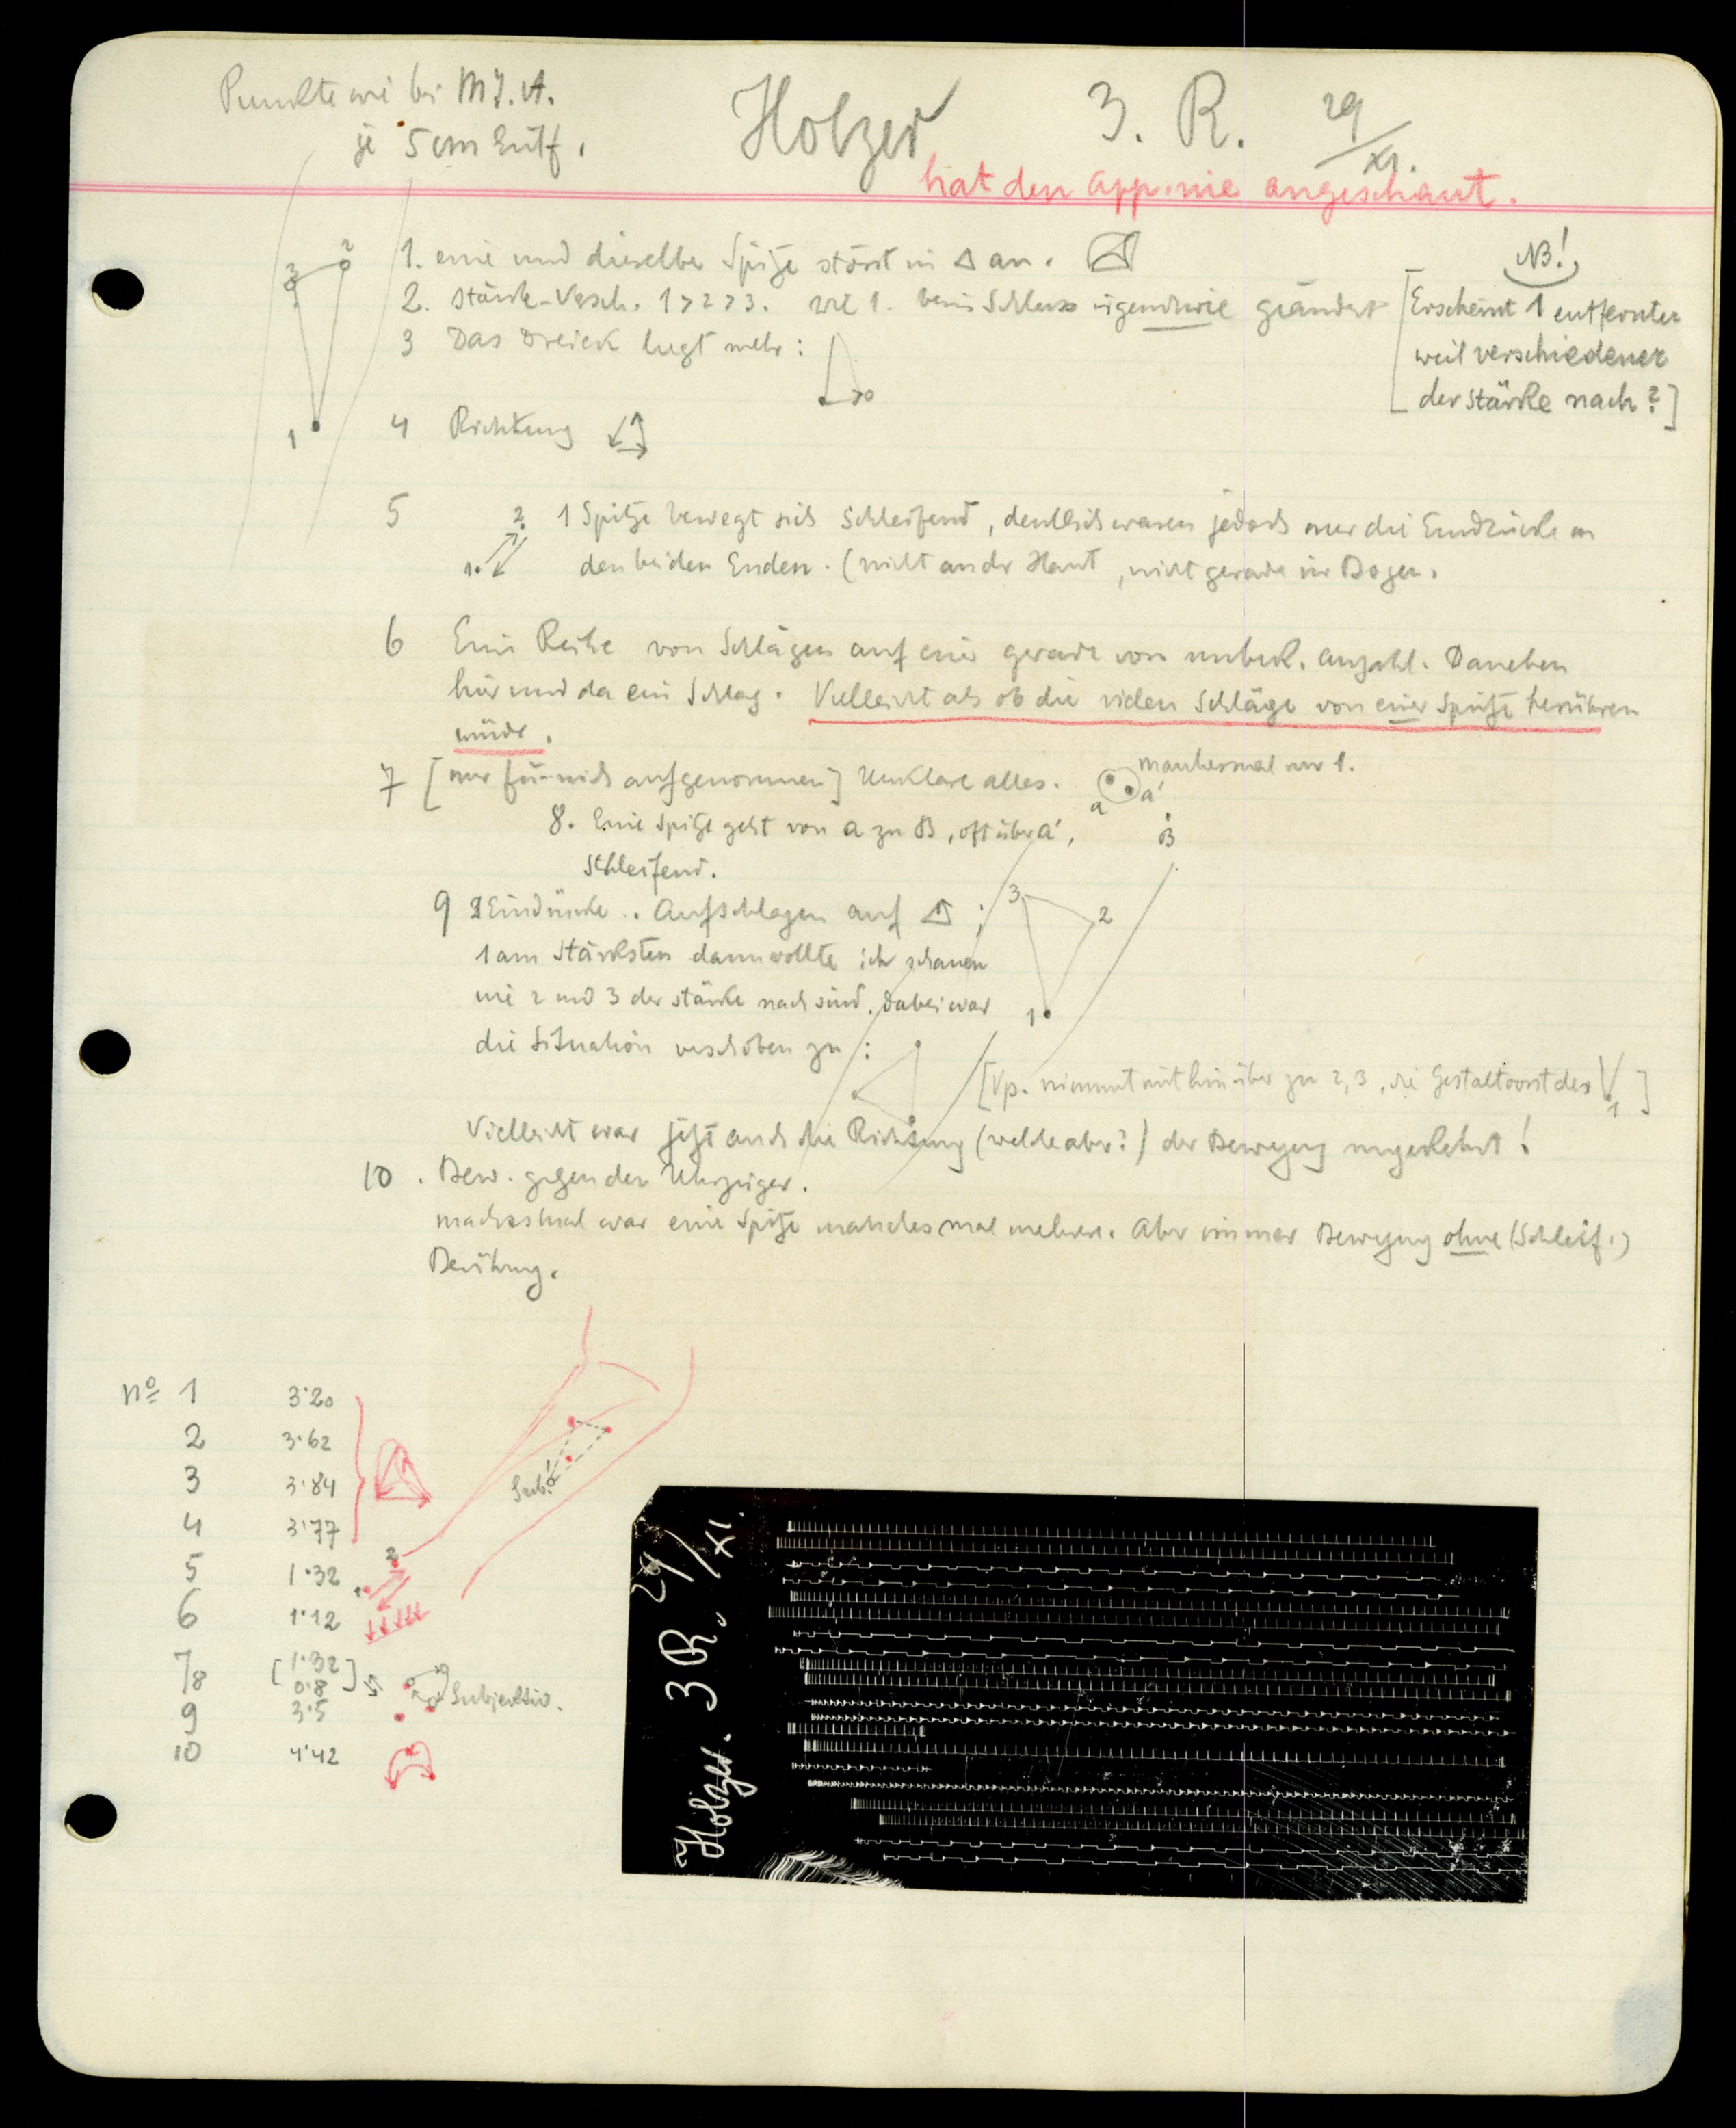 Punkte wie bei M.J.A.
je 5 cm Entf.
Holzer 3. R. 29/XI.
hat den App. nie angeschaut.
1. eine und dieselbe Spitze stösst in Δ an.
2. Stärke-Versch. 1>2>3. 1. beim Schluss irgendwie geändert
NB!
[Erscheint 1 entfernter
weil verschiedener
der Stärke nach?]
3 Das Dreieck liegt mehr:
3 2
1
4 Richtung
5 1 Spitze bewegt sich schleifend, deutlich waren jedoch nur die Eindrücke an
2.
1.
den beiden Enden. (nicht an der Haut, nicht gerade im Bogen.
6 Eine Reihe von Schlägen auf einer gerade von unbek. Anzahl. Daneben
hier und da ein Schlag. Vielleicht als ob die vielen Schläge von einer Spitze herrühren
würde.
7 [nur für mich aufgenommen] Unklare alles. manchesmal nur 1.
a a'
B
8. Eine Spitze geht von a zu B, oft über a',
schleifend.
9 3 Eindrücke. Aufschlagen auf Δ ;
3 2
1
1 am Stärksten dann wollte ich schauen
wie 2 und 3 der Stärke nach sind. Dabei war
die Situation verschoben zu :
[Vp. nimmt mit hinüber zu 2, 3, die Gestalt des V 1]
Vielleicht war jetzt auch die Richtung (welche aber?) der Bewegung umgekehrt!
10. Bew. gegen den Uhrzeiger.
manchesmal war eine Spitze manchesmal mehrere. Aber immer Bewegung ohne (Schleif.)
Berührung.
No 1 3·20
2 3·62
3 3·84
4 3·77
5 1·32
1 2
6 1·12
7/8 [1·32 0·8] Subjektiv.
9 3·5
10 4·42
Sub.
Holzer. 3R. 29/XI.